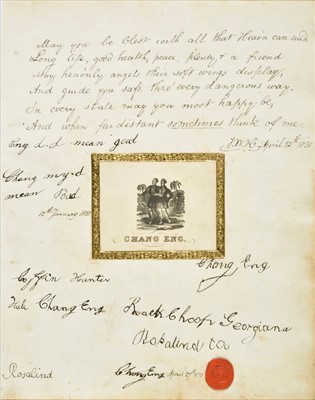 May you be blest with all that Heav'n can send
Long life, good health, peace, plenty, & a friend
May heavenly angels their soft wings display,
And guide you safe thro' every dangerous way.
In every state may you most happy be,
And when far distant sometimes think of me.
Eng mean god
April
Chang
mean Bod
12th January
CHANG ENG.
Chang Eng
Coffin Hunter
Hale Chang Eng
Georgiana
Rosalind
Rosalind
Chang Eng April